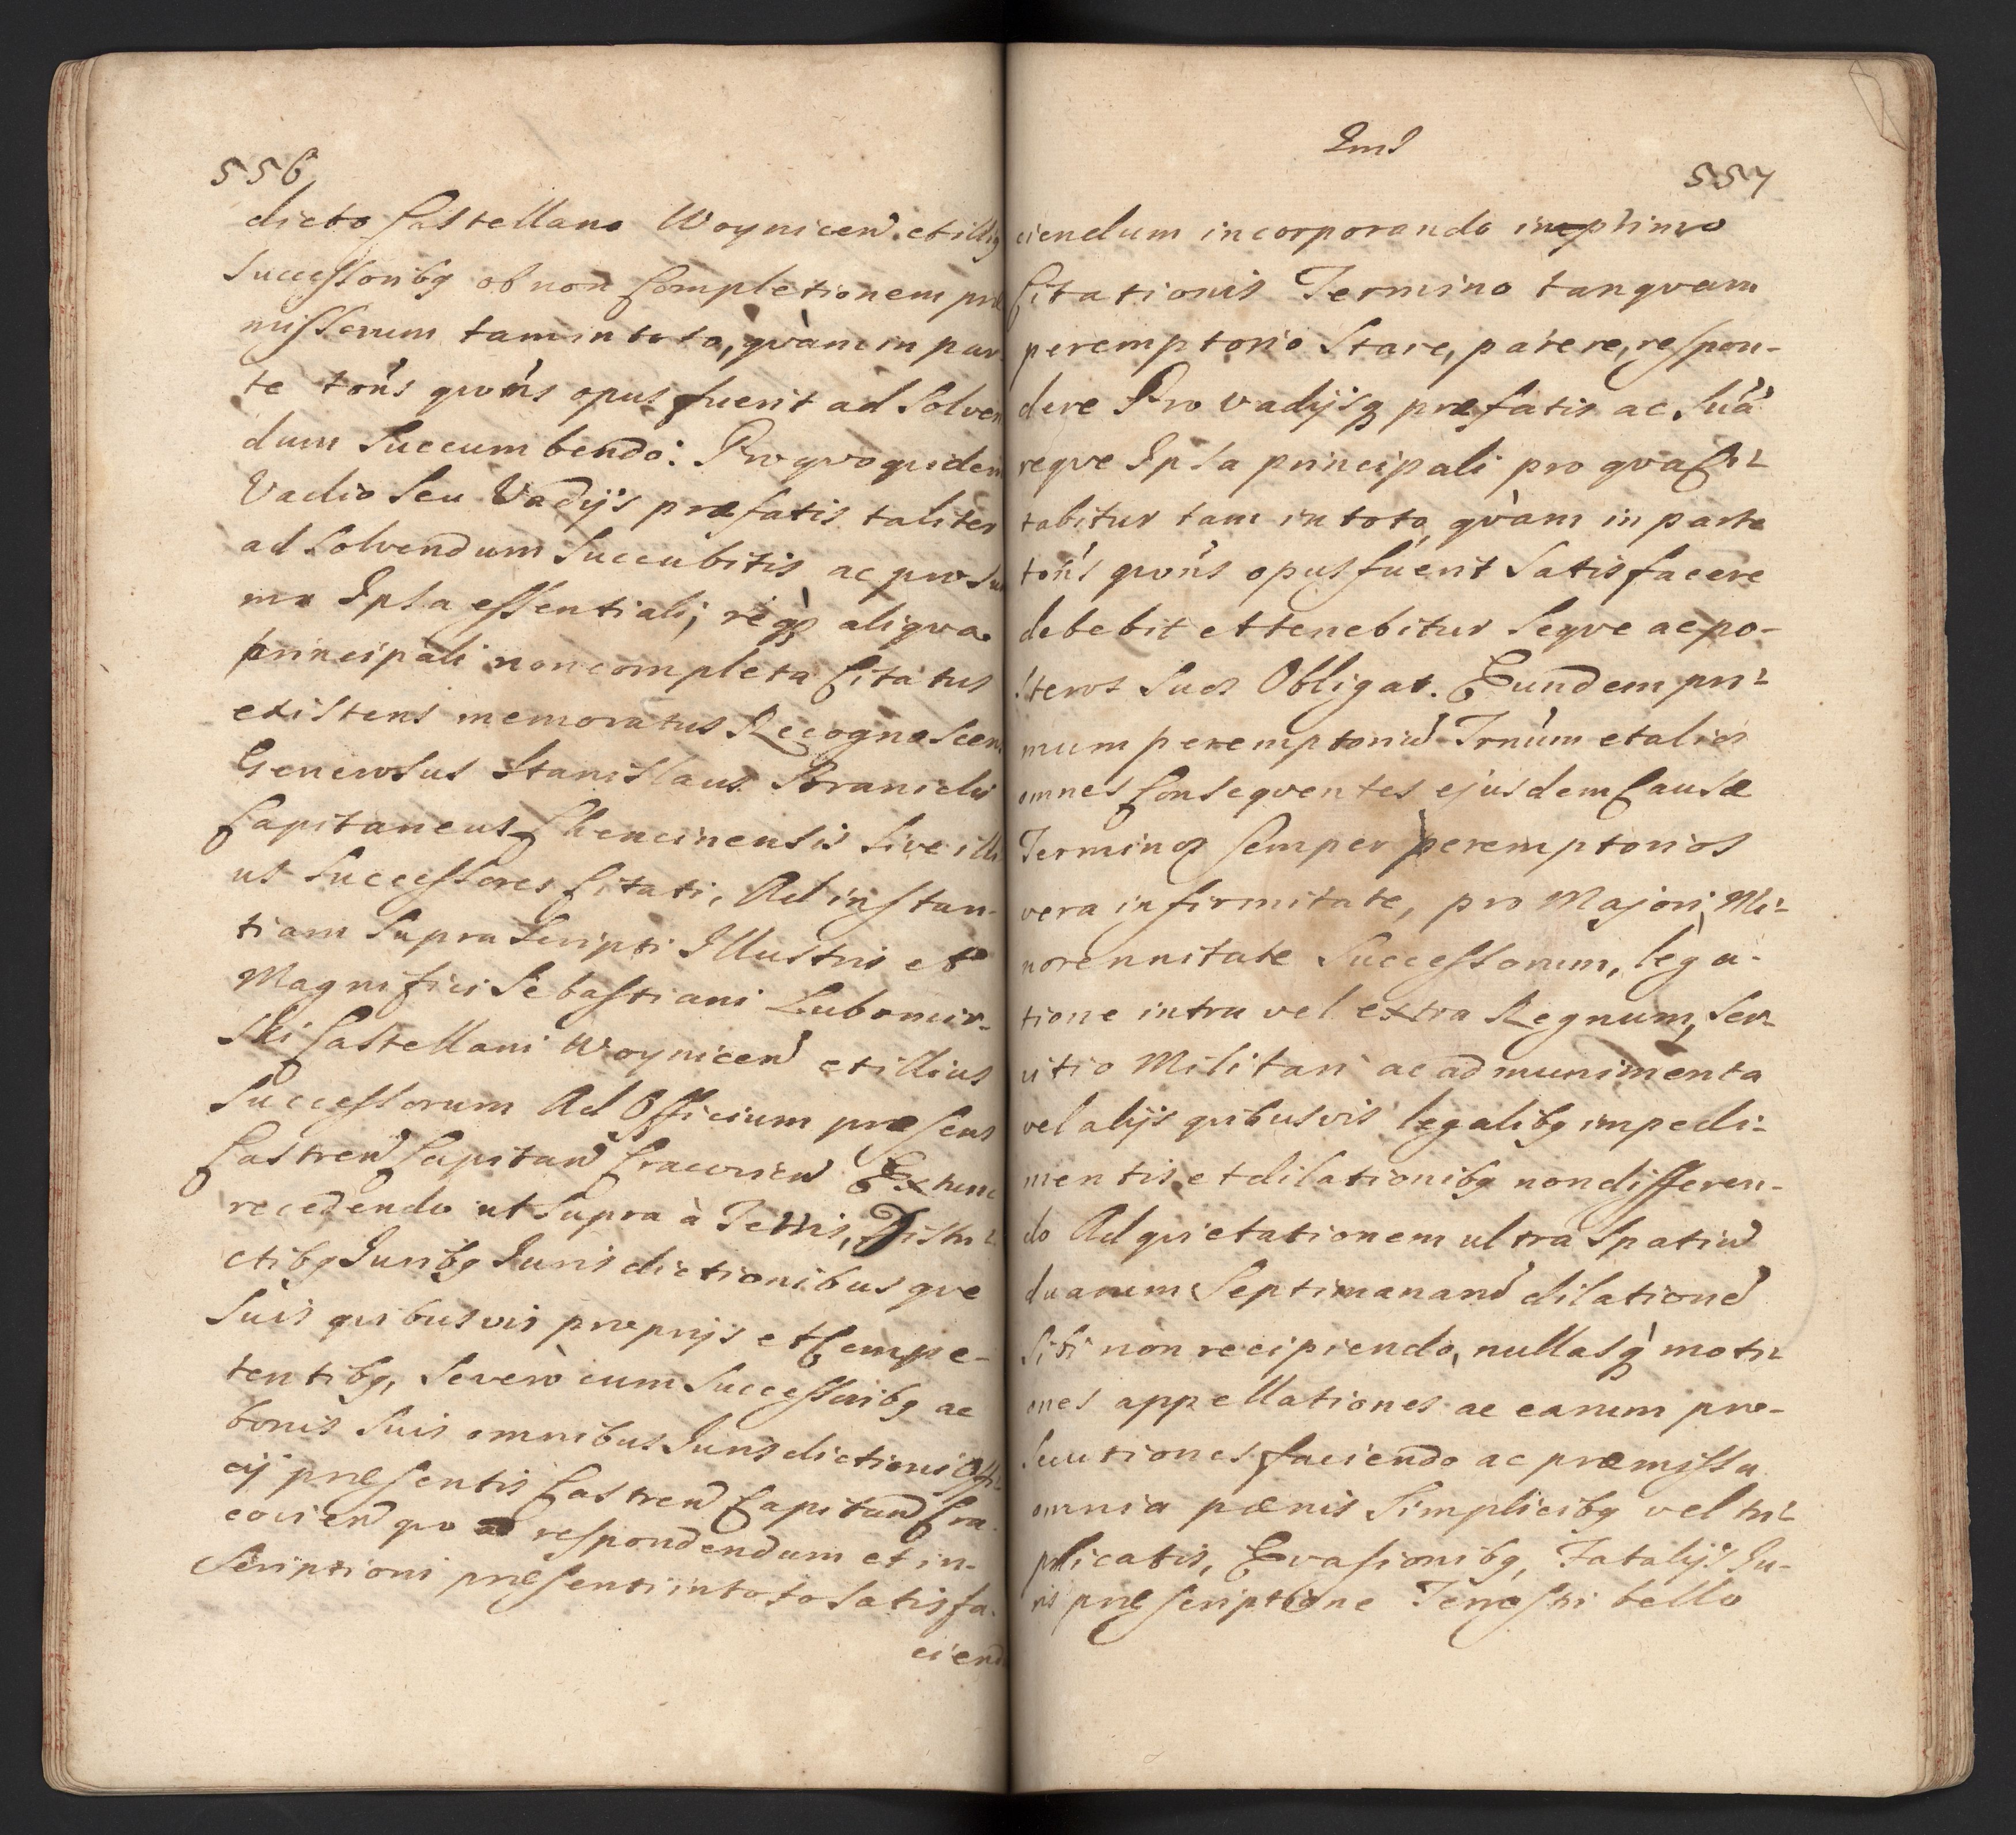 556
dicto Castellano Woynicen̄. et illig
Successoribg ob non Completionem præ
missorum tam in toto, qvàm in par
te tońs qvońs opus fuerit ad Solven
dum Succumbendo: Pro qvo qvidem
Vadio Seu Vadijs præfatis taliter
ad Solvendum Succubitis ac pro Su
ma Ipsa essentiali, reqʒ aliqva
principali non completa Citatus
existens memoratus Recognoscens
Generosus Stanislaus Branicki
Capitaneus Chencinensis Sive illi
us Successores Citati, Ad instan-
tiam Supra Scripti Illustris et
Magnifici Sebastiani Lubomir-
Ski Castellani Woynicen̄ et illius
Successorum Ad Officium præsens
Castren̄ Capitan̄ Cracovien̄ Extunc
recedendo ut Supra à Terris, Distri-
ctibg Juribg Jurisdictionibus qve
Suis qvibusvis proprijs et Compe-
tentibg, Severò cum Successoribg ac
bonis Suis omnibus Jurisdictioni Offi-
cij præsentis Castren̄ Capitan̄ Cra-
covien̄ qvo ad respondendum et in-
Scriptioni præsenti in toto Satisfa-
ciend
557
ciendum incorporando in primo
Citationis Termino tanqvam
peremptorio Stare, parere, respon-
dere Pro vadijsqʒ præfatis ac Suá
reqve Ipsa principali pro qva Ci-
tabitur tam in toto qvàm in parte
tońs qvońs opus fuerit Satisfacere
debebit et tenebitur Seqve ac po-
steros Suos Obligat. Eundem pri-
mum peremptoriū Trńum et alios
omnes Conseqventes ejusdem Causæ
Terminos Semper peremptorios
vera infirmitate, pro Majori, Mi-
norennitate Successorum, lega-
tione intra vel extra Regnum, Ser-
vitio Militari ac ad munimenta
vel alijs qvibusvis legalibg impedi-
mentis et dilationibg non differen-
do Ad qvietationem ultra Spatiū
duarum Septimanarū dilationē
Sibi non recipiendo, nullasq̀ moti-
ones appellationes ac earum pro-
Secutiones faciendo ac præmissa
omnia pænis Simplicibg vel tri-
plicatis, Evasionibg, Fatalijs Ju-
ris præscriptione Terrestri bello